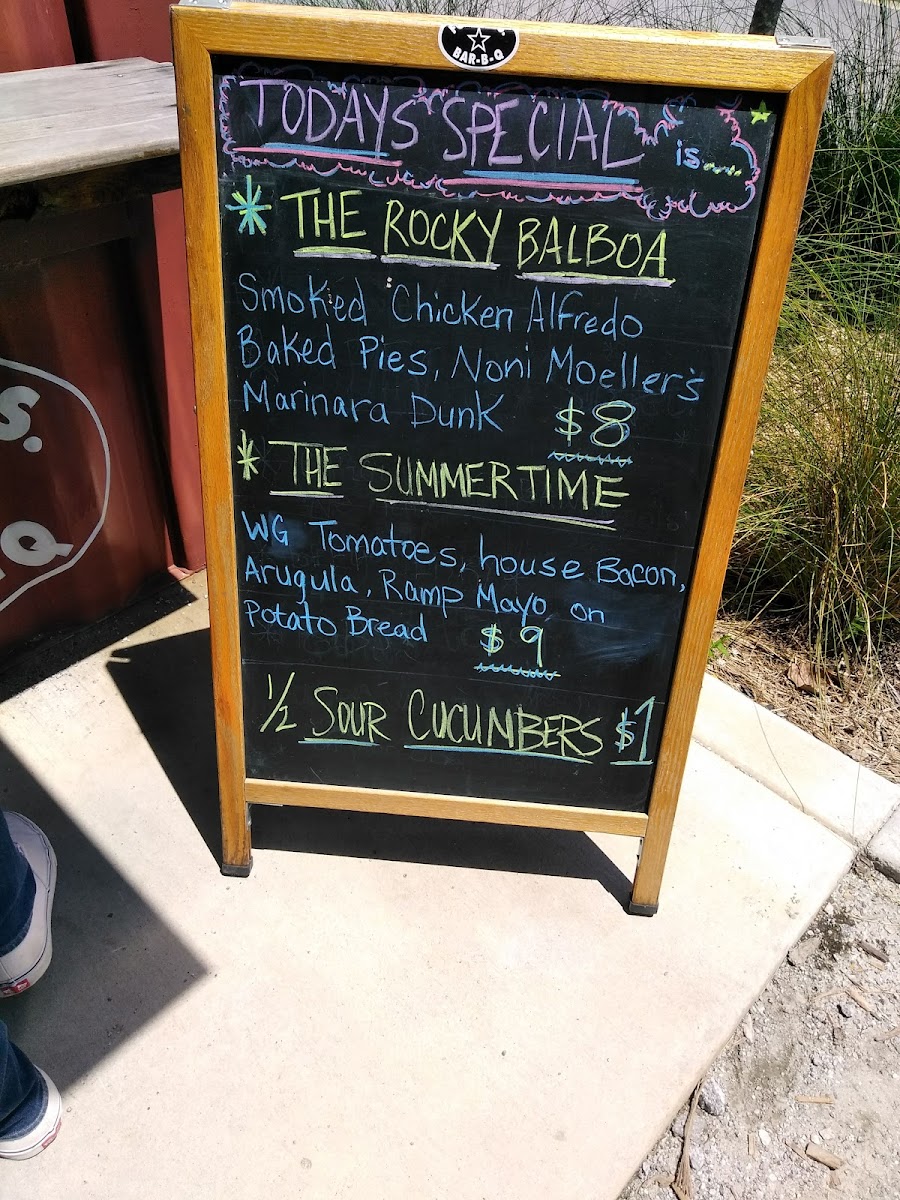 BAR-B-Q
TODAYS SPECIAL is....
* THE ROCKY BALBOA
Smoked Chicken Alfredo
Baked Pies, Noni Moeller's
Marinara Dunk $8
* THE SUMMERTIME
WG Tomatoes, house Bacon,
Arugula, Ramp Mayo on
Potato Bread $9
1/2 SOUR CUCUMBERS $1
S.
Q